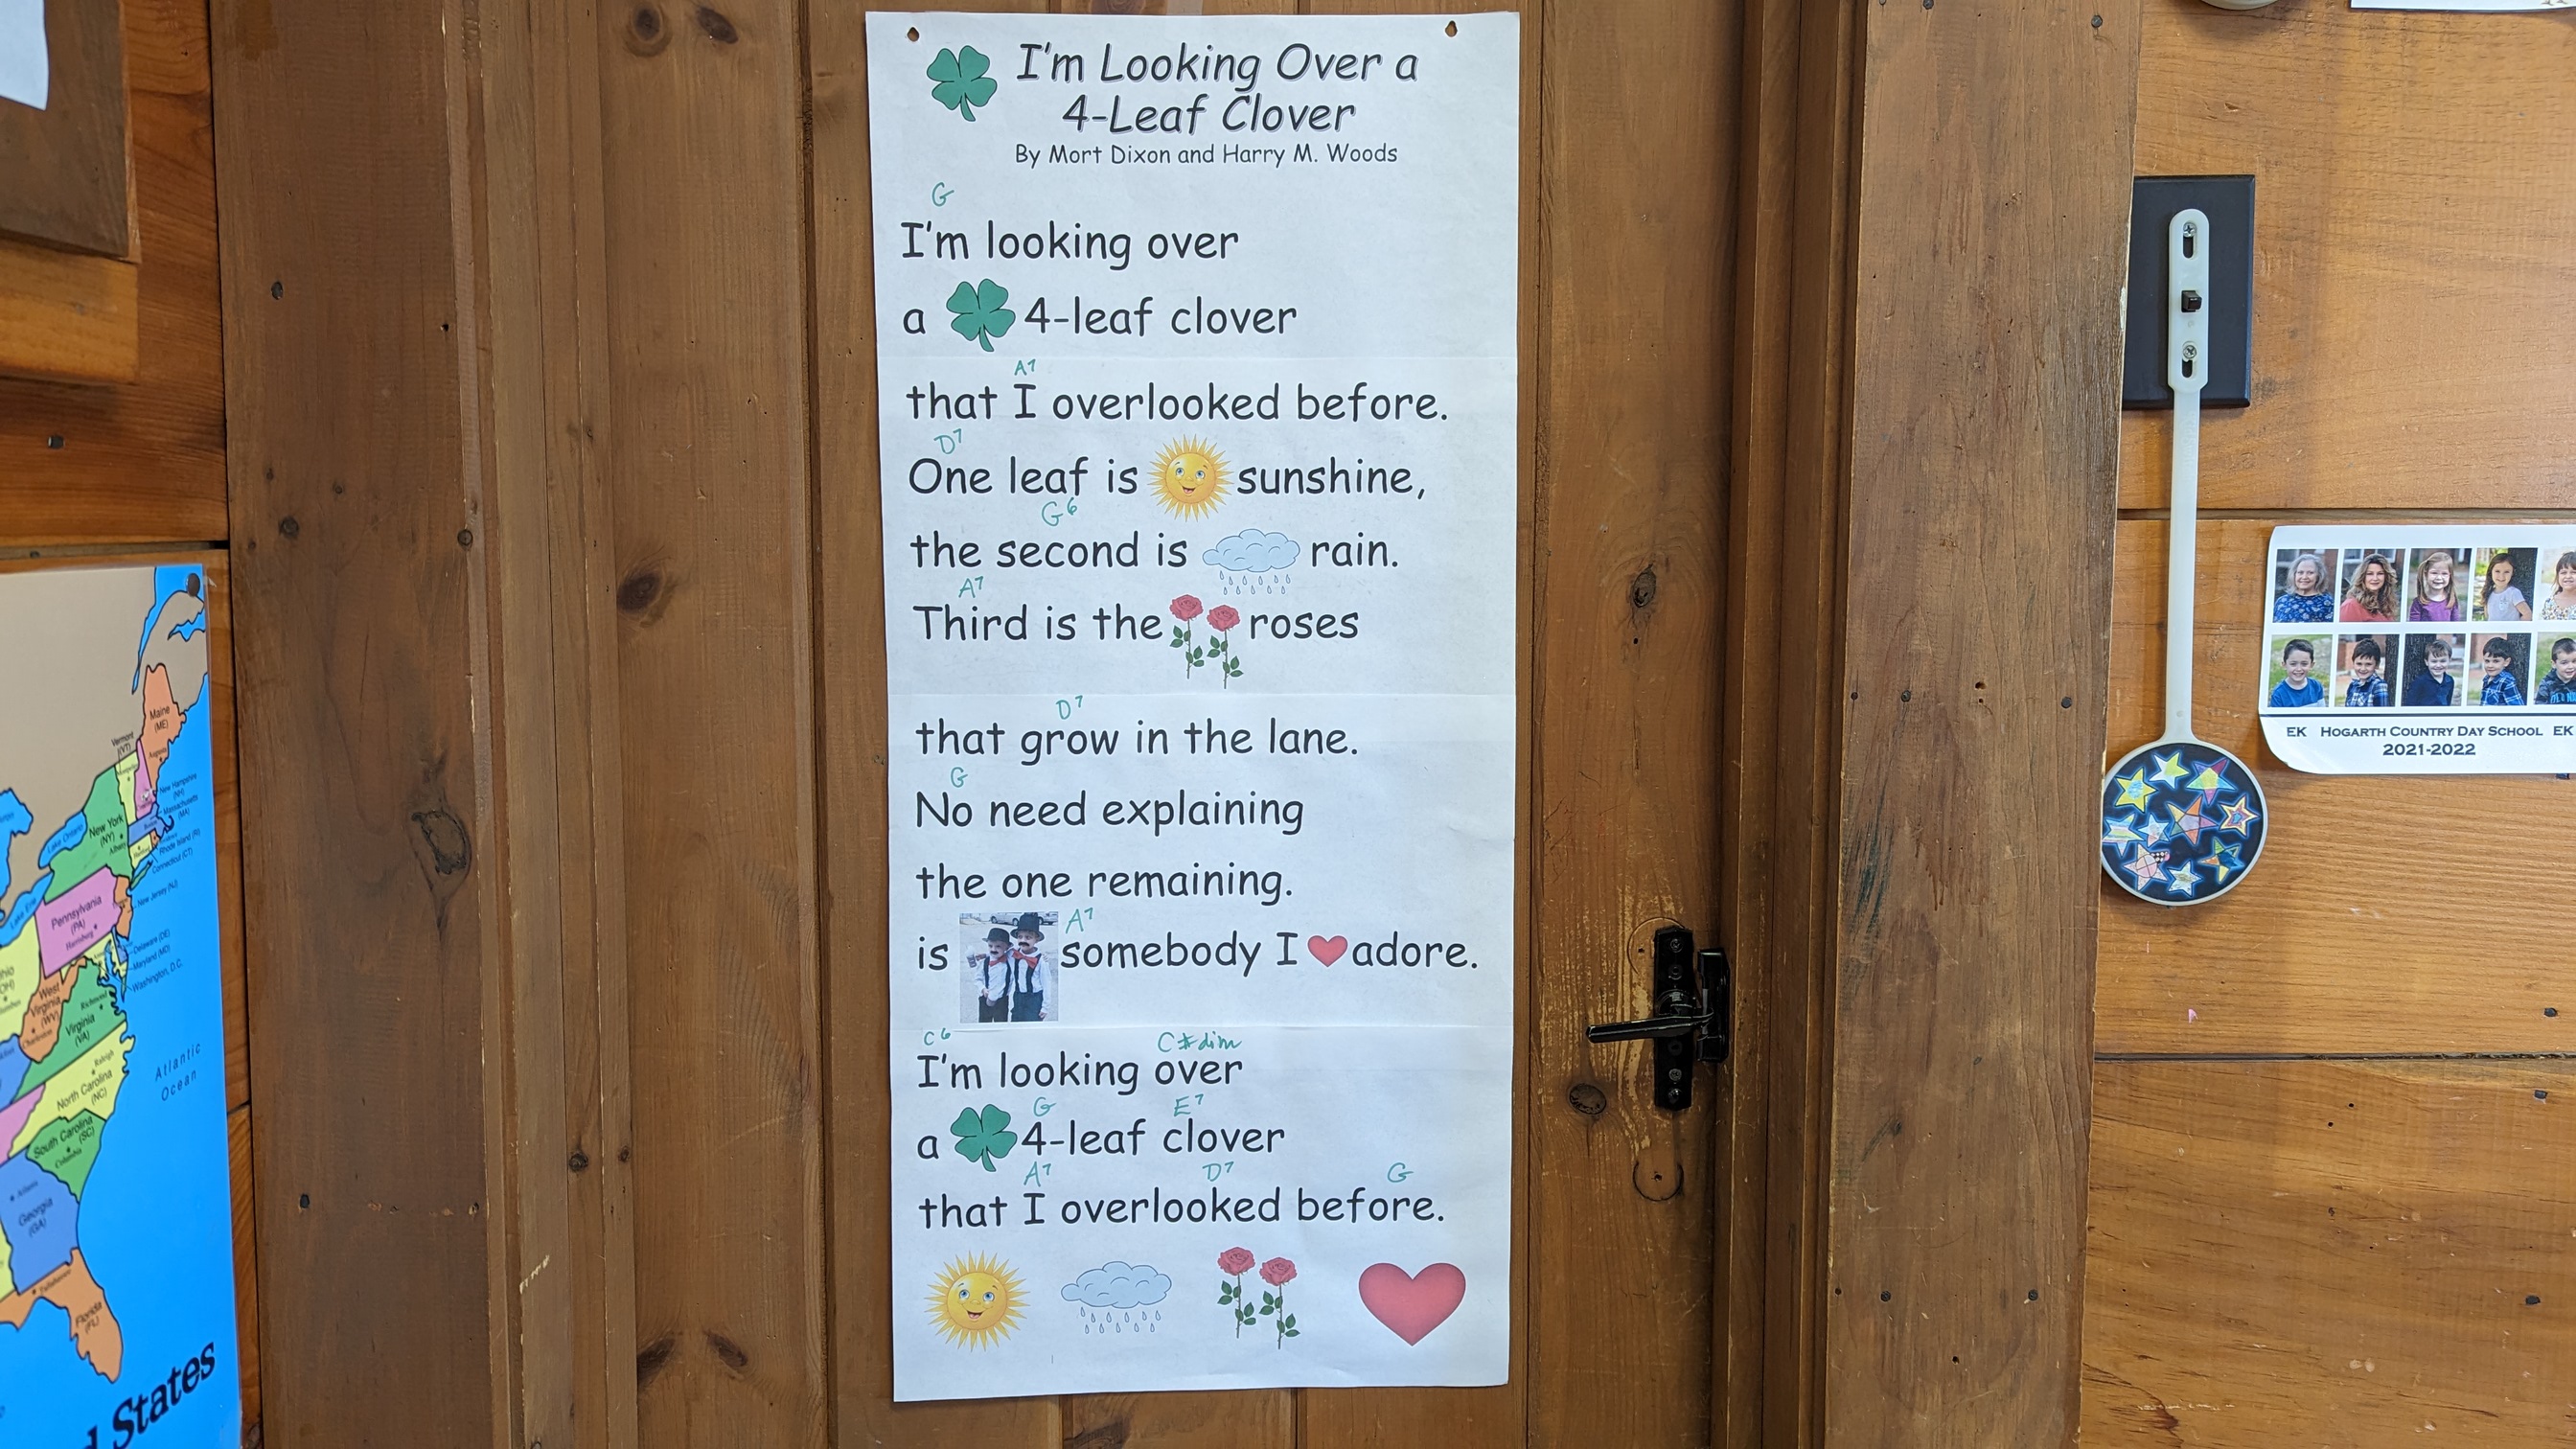 I'm Looking Over a
4-Leaf Clover
By Mort Dixon and Harry M. Woods
G
I'm looking over
a 4-leaf clover
A7
that I overlooked before.
D7
One leaf is sunshine,
G6
the second is rain.
A7
Third is the roses
D7
that grow in the lane.
G
No need explaining
the one remaining.
A7
is somebody I adore.
C6 C#dim
I'm looking over
G E7
a 4-leaf clover
A7 D7 G
that I overlooked before.
Maine
(ME)
Vermont
(VT)
New Hampshire
(NH)
Massachusetts
(MA)
Rhode Island (RI)
Connecticut (CT)
New York
(NY)
Lake Ontario
Lake Erie
New Jersey (NJ)
Pennsylvania
(PA)
Harrisburg
Delaware (DE)
Maryland (MD)
Washington, D.C.
West
Virginia
(WV)
Charleston
Virginia
(VA)
Richmond
Raleigh
North Carolina
(NC)
South Carolina
(SC)
Columbia
Atlantic
Ocean
Atlanta
Georgia
(GA)
Tallahassee
Florida
(FL)
States
EK HOGARTH COUNTRY DAY SCHOOL EK
2021-2022